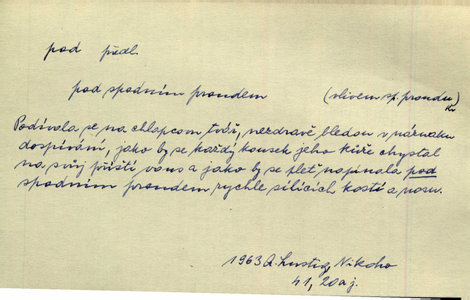 pod předl.
pod spodním proudem (vlivem sp. proudu)
Podívala se na chlapcovu tvář, nezdravě bledou v náznaku
dospívání, jako by se každý kousek jeho kůže chystal
na svůj příští vous a jako by se pleť napínala pod
spodním proudem rychle sílících kostí a nosu.
1963 A. Lustig, Nikoho
41, 20aj.